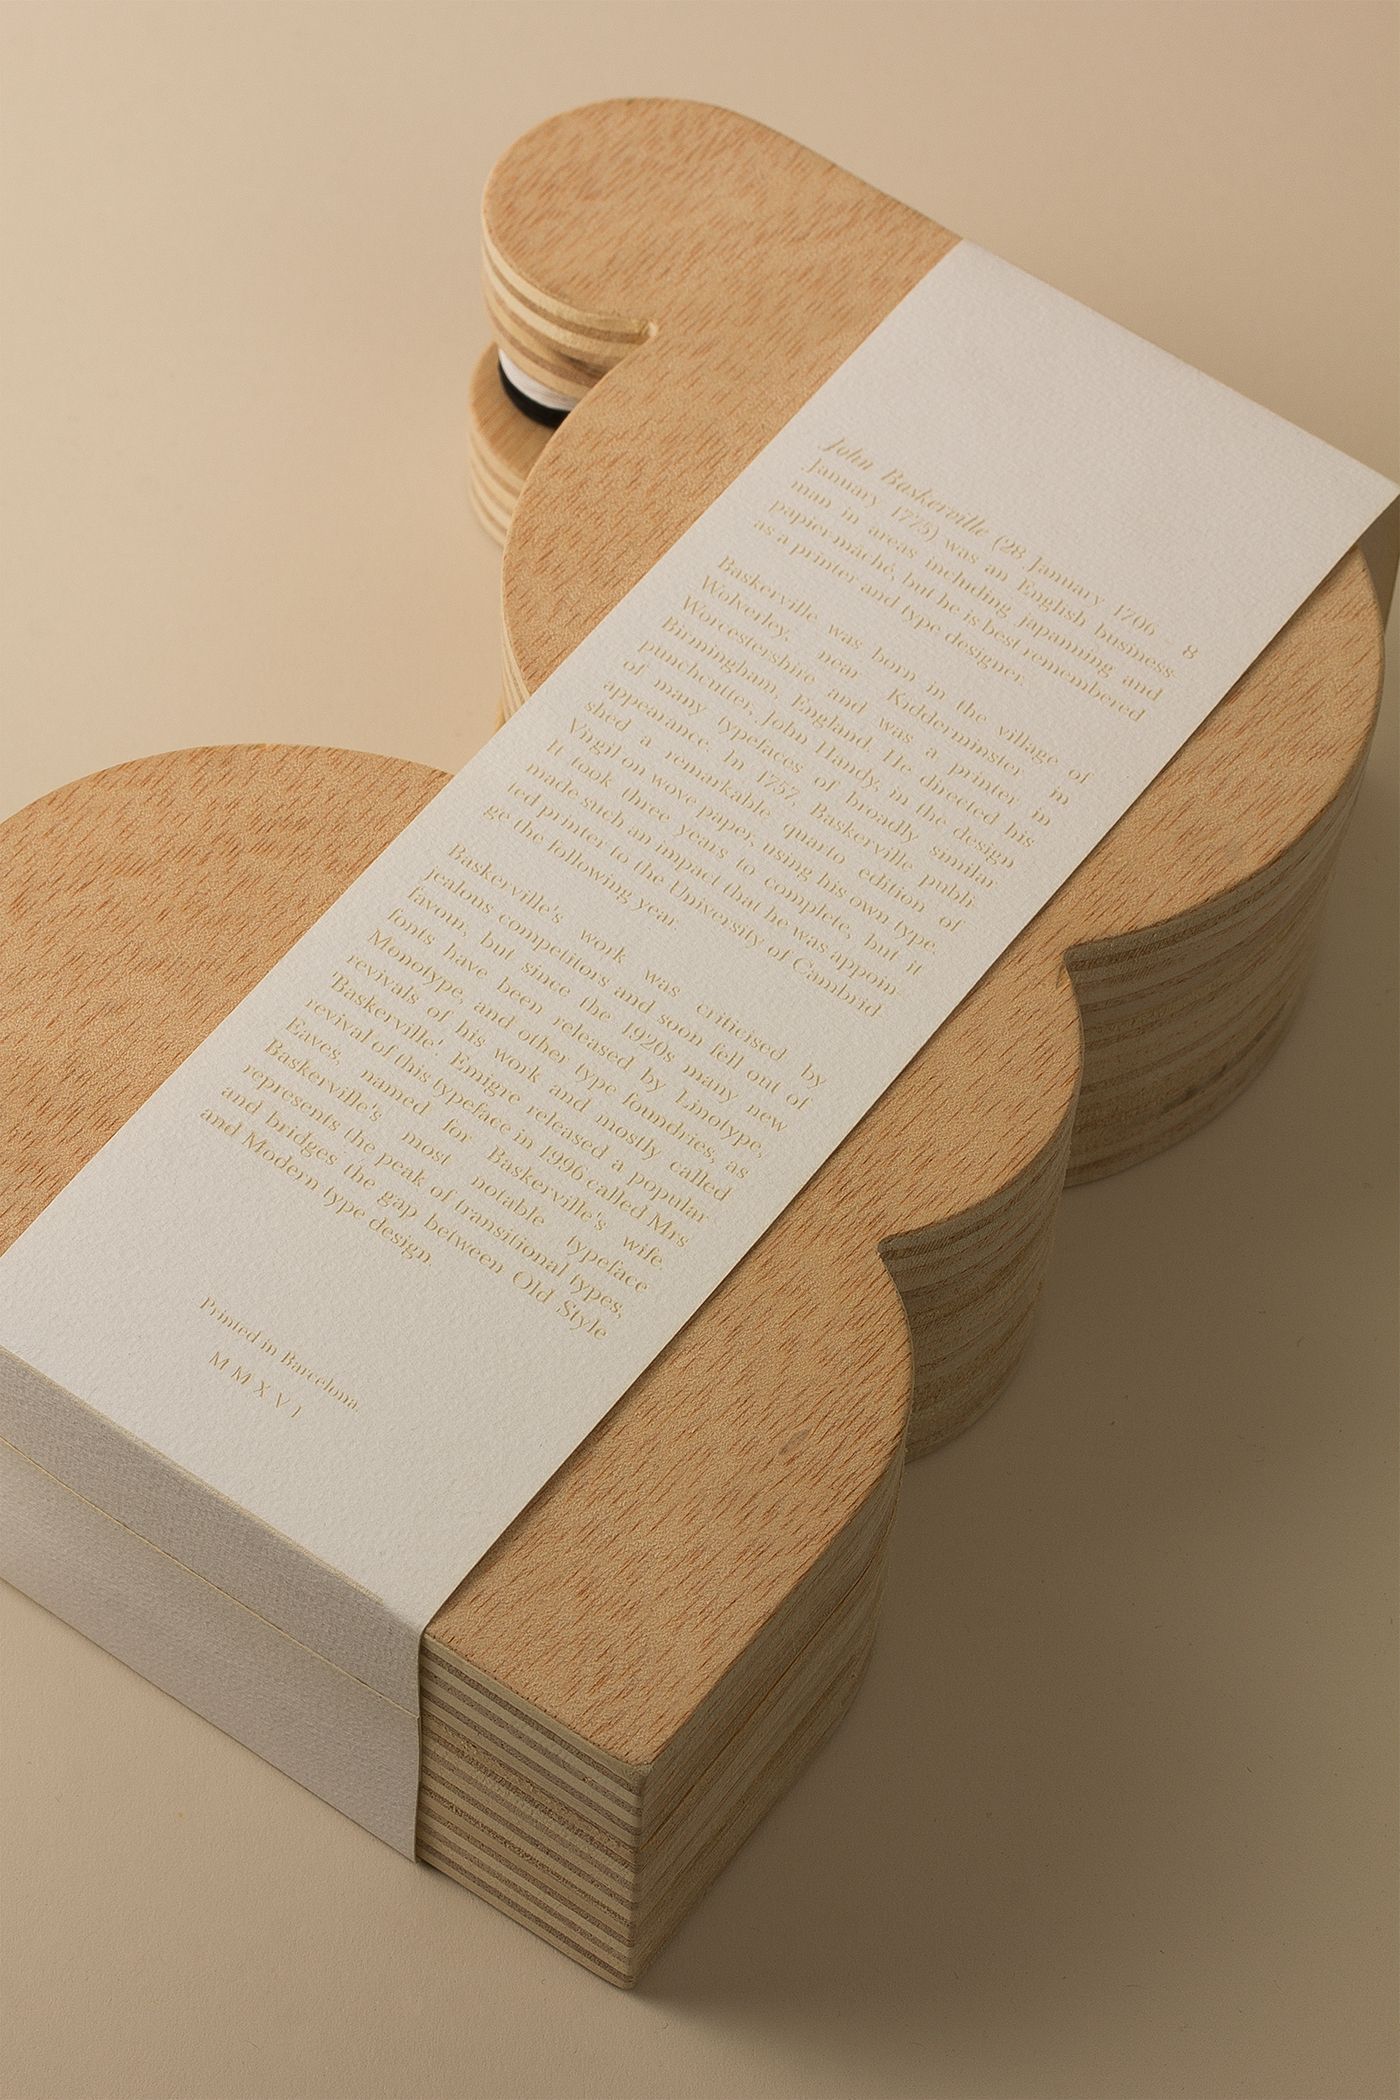 John Baskerville (28 January 1706 – 8
January 1775) was an English business-
man in areas including japanning and
papier-mâché, but he is best remembered
as a printer and type designer.
Baskerville was born in the village of
Wolverley, near Kidderminster in
Worcestershire and was a printer in
Birmingham, England. He directed his
punchcutter, John Handy, in the design
of many typefaces of broadly similar
appearance. In 1757, Baskerville publi-
shed a remarkable quarto edition of
Virgil on wove paper, using his own type.
It took three years to complete, but it
made such an impact that he was appoin-
ted printer to the University of Cambrid-
ge the following year.
Baskerville's work was criticised by
jealous competitors and soon fell out of
favour, but since the 1920s many new
fonts have been released by Linotype,
Monotype, and other type foundries, as
revivals of his work and mostly called
'Baskerville'. Emigre released a popular
revival of this typeface in 1996 called Mrs
Eaves, named for Baskerville's wife.
Baskerville's most notable typeface
represents the peak of transitional types,
and bridges the gap between Old Style
and Modern type design.
Printed in Barcelona.
M M X V I